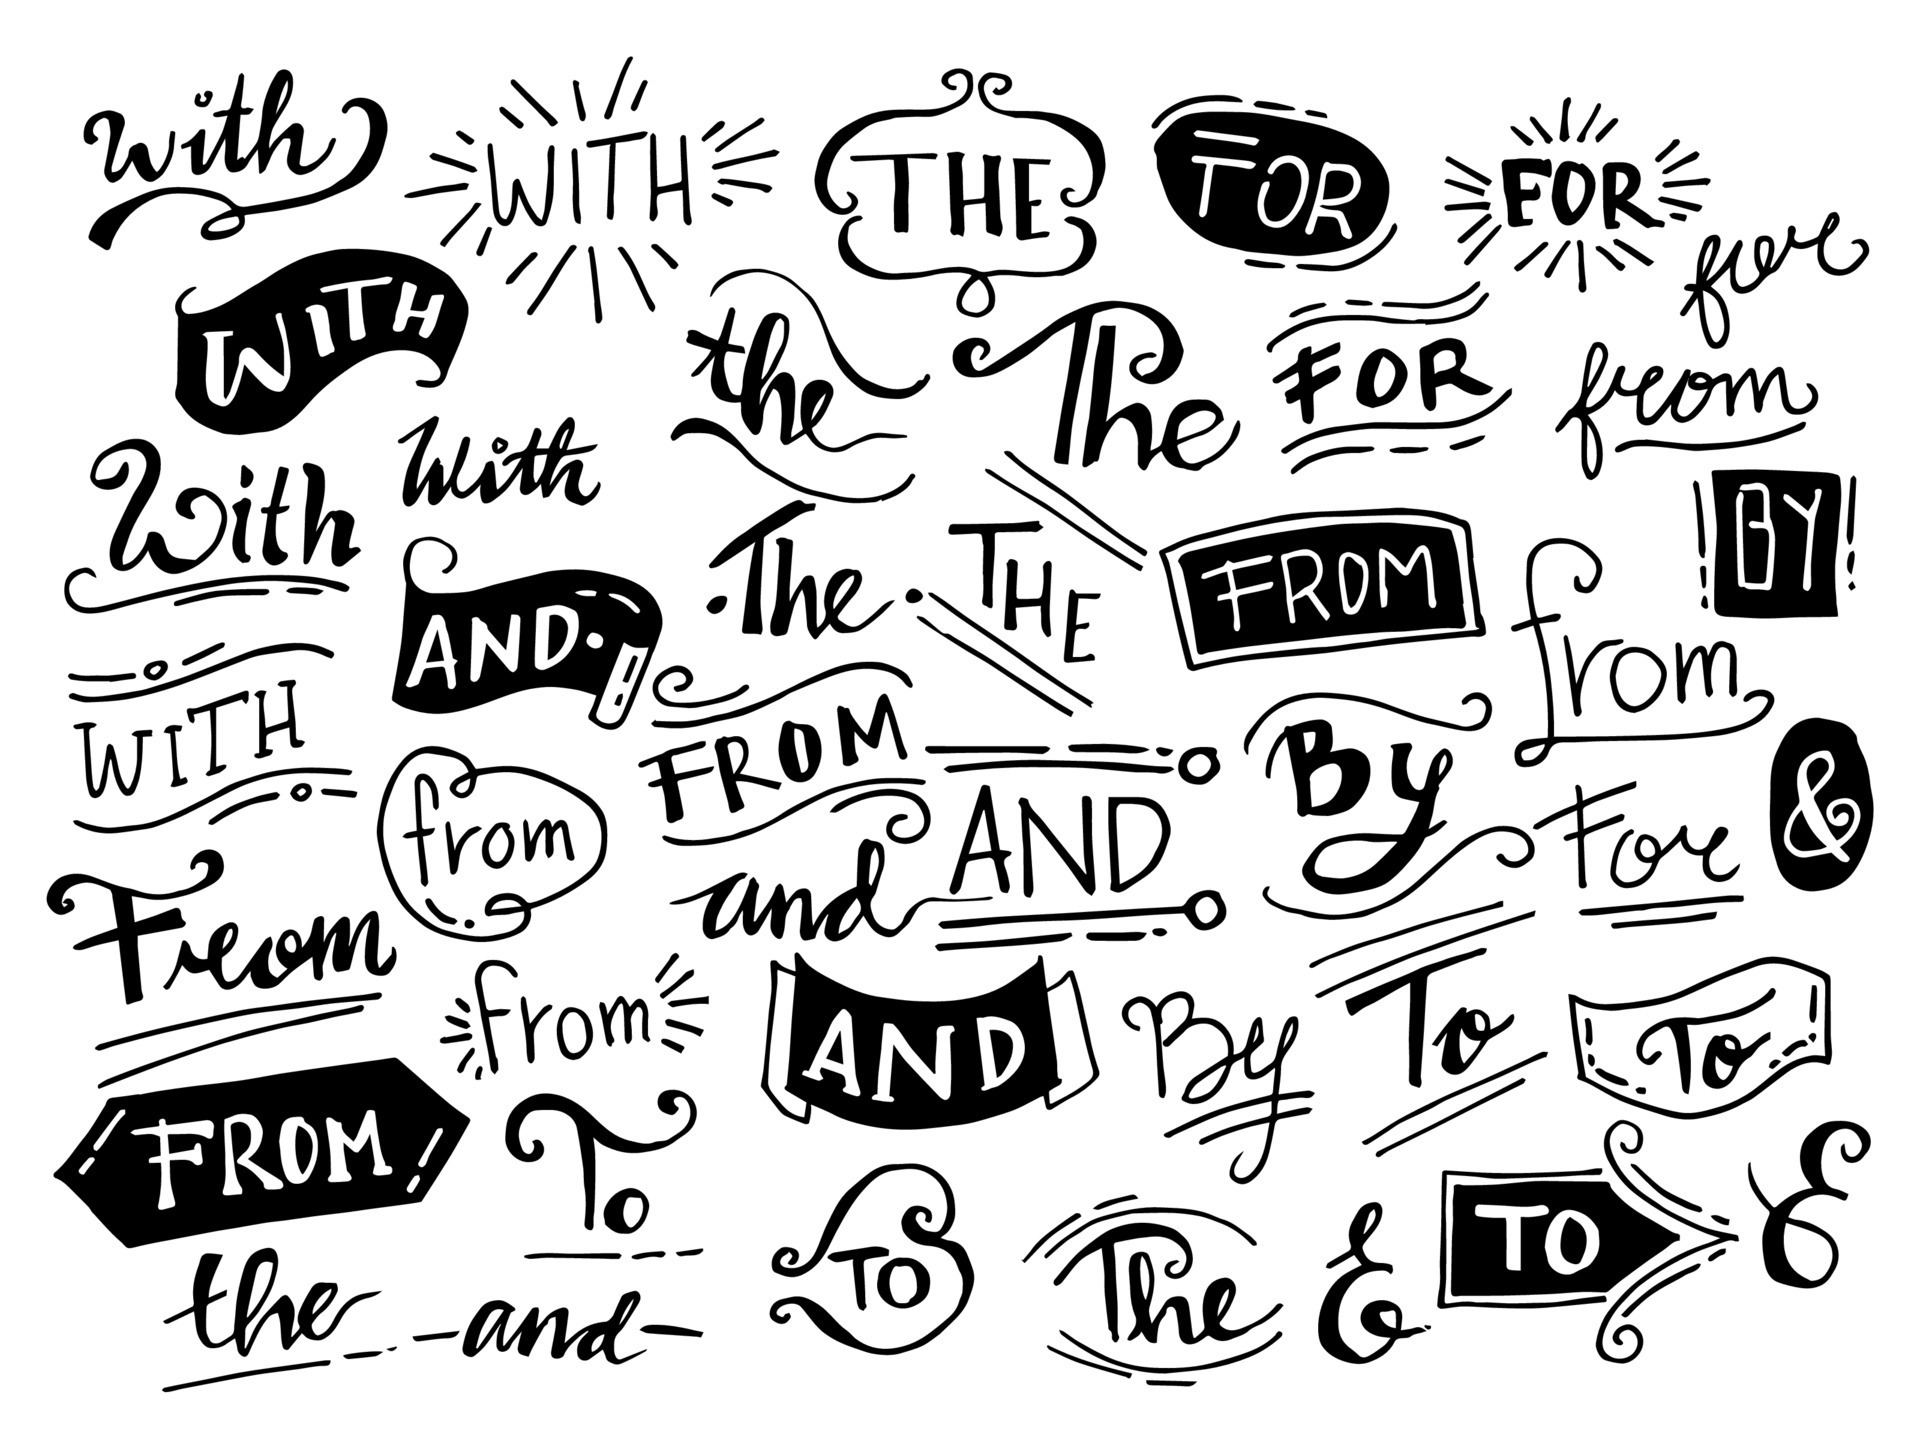 with
WITH
THE
FOR
FOR
for
WITH
the
The
FOR
from
With
with
The
THE
FROM
BY
AND
from
WITH
from
FROM
AND
By
For
&
From
and
from
AND
By
To
To
FROM
To
TO
The
&
TO
&
the
and